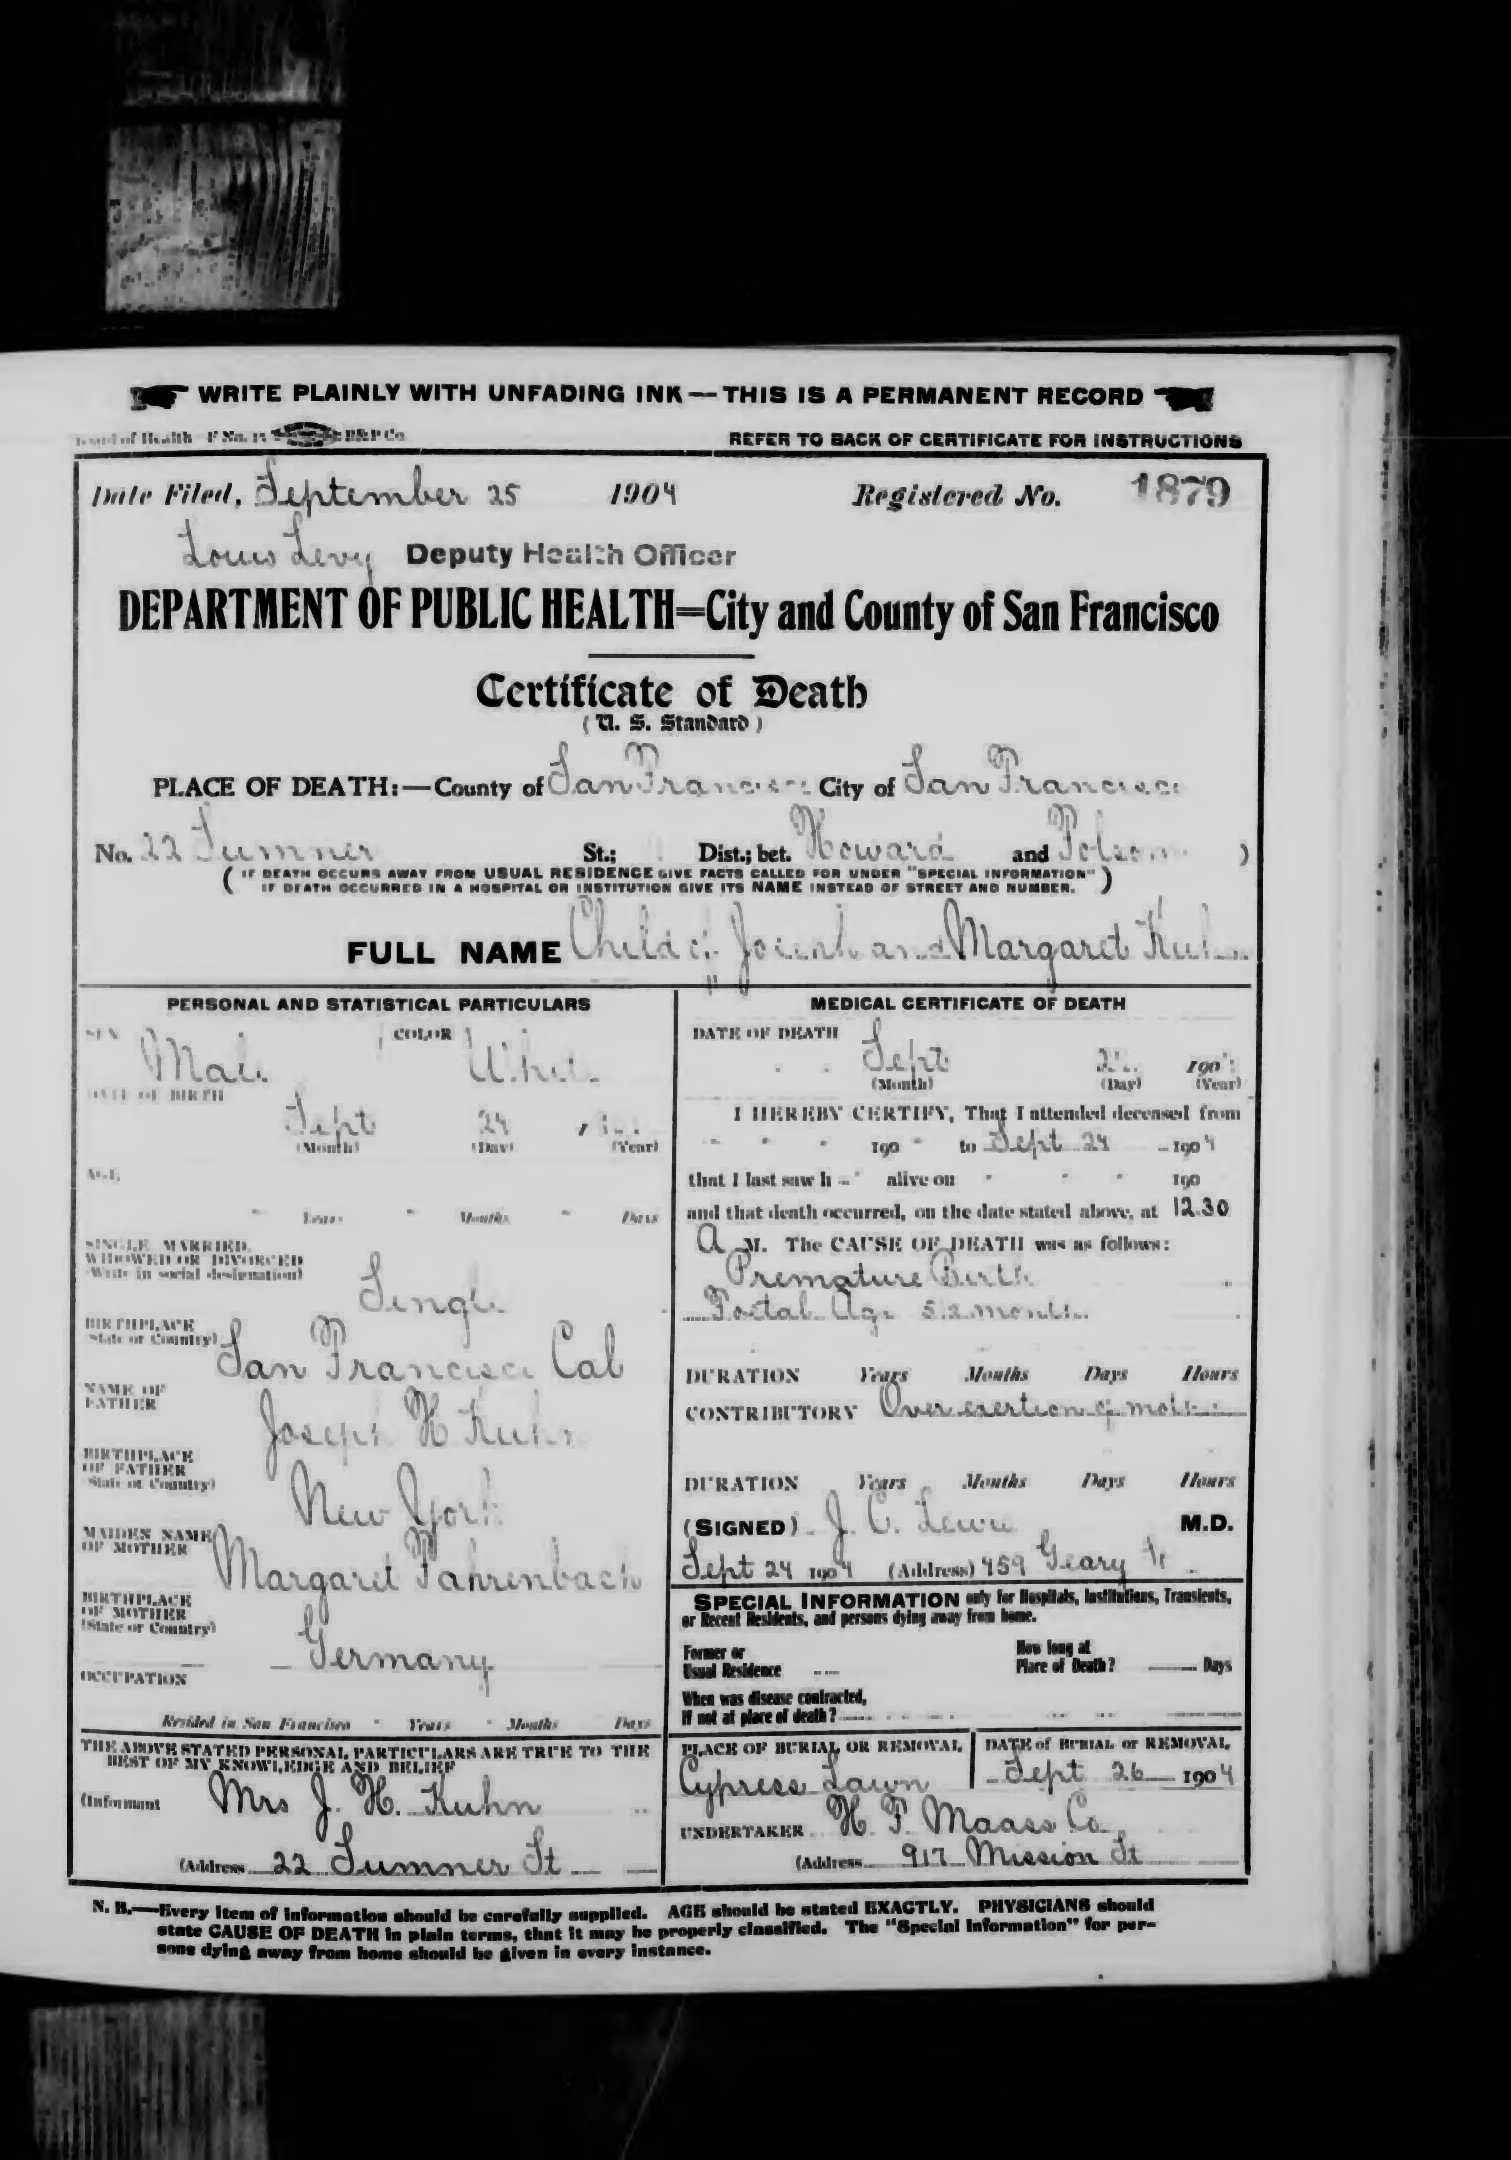 WRITE PLAINLY WITH UNFADING INK — THIS IS A PERMANENT RECORD
of Health F No. B&P Co.
REFER TO BACK OF CERTIFICATE FOR INSTRUCTIONS
Date Filed, September 25 1904 Registered No. 1879
Louis Levy Deputy Health Officer
DEPARTMENT OF PUBLIC HEALTH=City and County of San Francisco
Certificate of Death
(U. S. Standard)
PLACE OF DEATH:—County of San Francisco City of San Francisco
No. 22 Sumner St.; Dist.; bet. Howard and Folsom )
( IF DEATH OCCURS AWAY FROM USUAL RESIDENCE GIVE FACTS CALLED FOR UNDER "SPECIAL INFORMATION" )
IF DEATH OCCURRED IN A HOSPITAL OR INSTITUTION GIVE ITS NAME INSTEAD OF STREET AND NUMBER.
FULL NAME Child of Joseph and Margaret Kuhn
PERSONAL AND STATISTICAL PARTICULARS
SEX Male COLOR White
DATE OF BIRTH
Sept 24
(Month) (Day) (Year)
AGE
Years Months Days
SINGLE, MARRIED,
WIDOWED OR DIVORCED
(Write in social designation)
Single
BIRTHPLACE
(State or Country)
San Francisco Cal
NAME OF
FATHER
Joseph H Kuhn
BIRTHPLACE
OF FATHER
(State or Country)
New York
MAIDEN NAME
OF MOTHER
Margaret Fahrenbach
BIRTHPLACE
OF MOTHER
(State or Country)
Germany
OCCUPATION
Resided in San Francisco Years Months Days
THE ABOVE STATED PERSONAL PARTICULARS ARE TRUE TO THE
BEST OF MY KNOWLEDGE AND BELIEF
(Informant Mrs J. H. Kuhn
(Address 22 Sumner St
MEDICAL CERTIFICATE OF DEATH
DATE OF DEATH
Sept 190
(Month) (Day) (Year)
I HEREBY CERTIFY, That I attended deceased from
190 to Sept 24 1904
that I last saw h alive on 190
and that death occurred, on the date stated above, at 12.30
A M. The CAUSE OF DEATH was as follows:
Premature Birth
Foetal Age 5 1/2 months
DURATION Years Months Days Hours
CONTRIBUTORY Over exertion of mother
DURATION Years Months Days Hours
(SIGNED) J. C. M.D.
Sept 24 1904 (Address) 459 Geary St
SPECIAL INFORMATION only for Hospitals, Institutions, Transients,
or Recent Residents, and persons dying away from home.
Former or
Usual Residence
How long at
Place of Death? Days
When was disease contracted,
If not at place of death?
PLACE OF BURIAL OR REMOVAL
Cypress Lawn
DATE of BURIAL or REMOVAL
Sept 26 1904
UNDERTAKER H. F. Maass Co
(Address 917 Mission St
N. B.—Every item of information should be carefully supplied. AGE should be stated EXACTLY. PHYSICIANS should
state CAUSE OF DEATH in plain terms, that it may be properly classified. The "Special Information" for per-
sons dying away from home should be given in every instance.